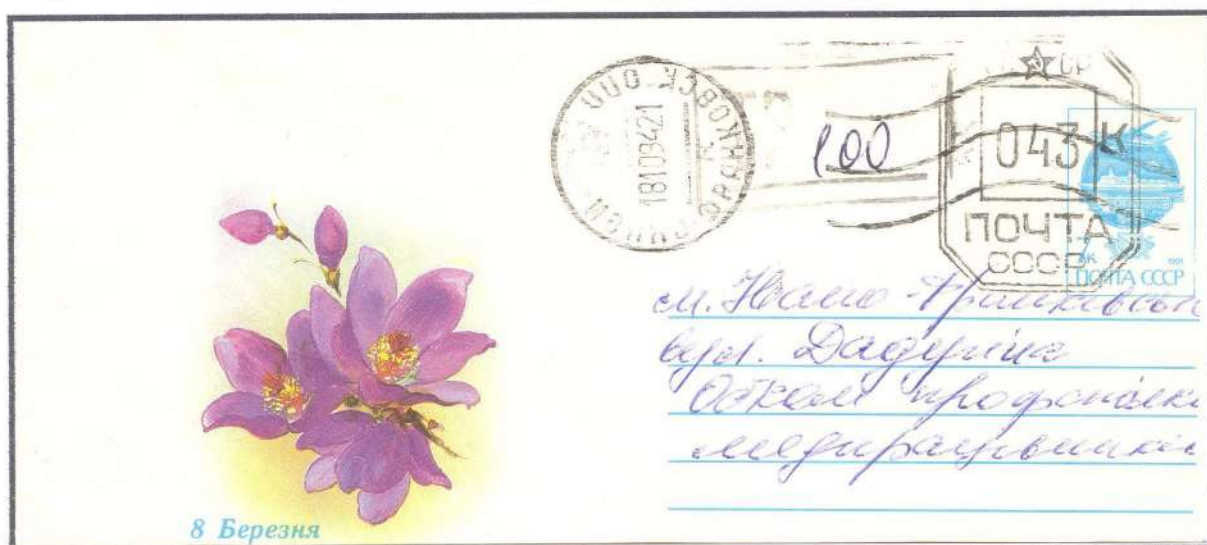 ИВАНО-ФРАНКОВСК ОПП
18109421
100
043 К
ПОЧТА
СССР
1991
ПОЧТА СССР
м. Івано-Франківськ
вул.
Обком профспілки
медпрацівників
8 Березня